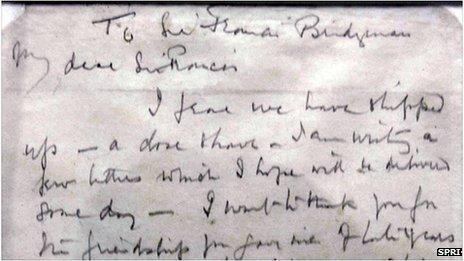 To Sir Francis Bridgeman
My dear Sir Francis
I fear we have shipped
up – a close shave – I am writing a
few letters which I hope will be delivered
some day – I want to thank you for
the friendship you gave me of late years
SPRI